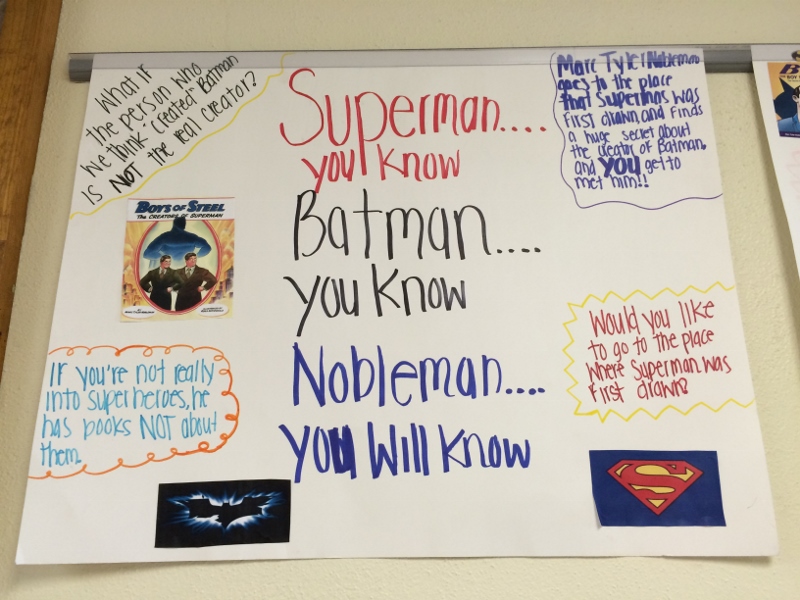 What If
the person who
we think "created" Batman
is NOT the real creator?
Superman....
you know
Batman....
you know
Nobleman....
you Will know
Marc Tyler Nobleman
goes to the place
that Superman was
first drawn, and finds
a huge secret about
the creator of Batman.
and YOU get to
met him!!
BOYS OF STEEL
THE CREATORS OF SUPERMAN
If you're not really
into superheroes, he
has books NOT about
them.
Would you like
to go to the place
where Superman was
first drawn?